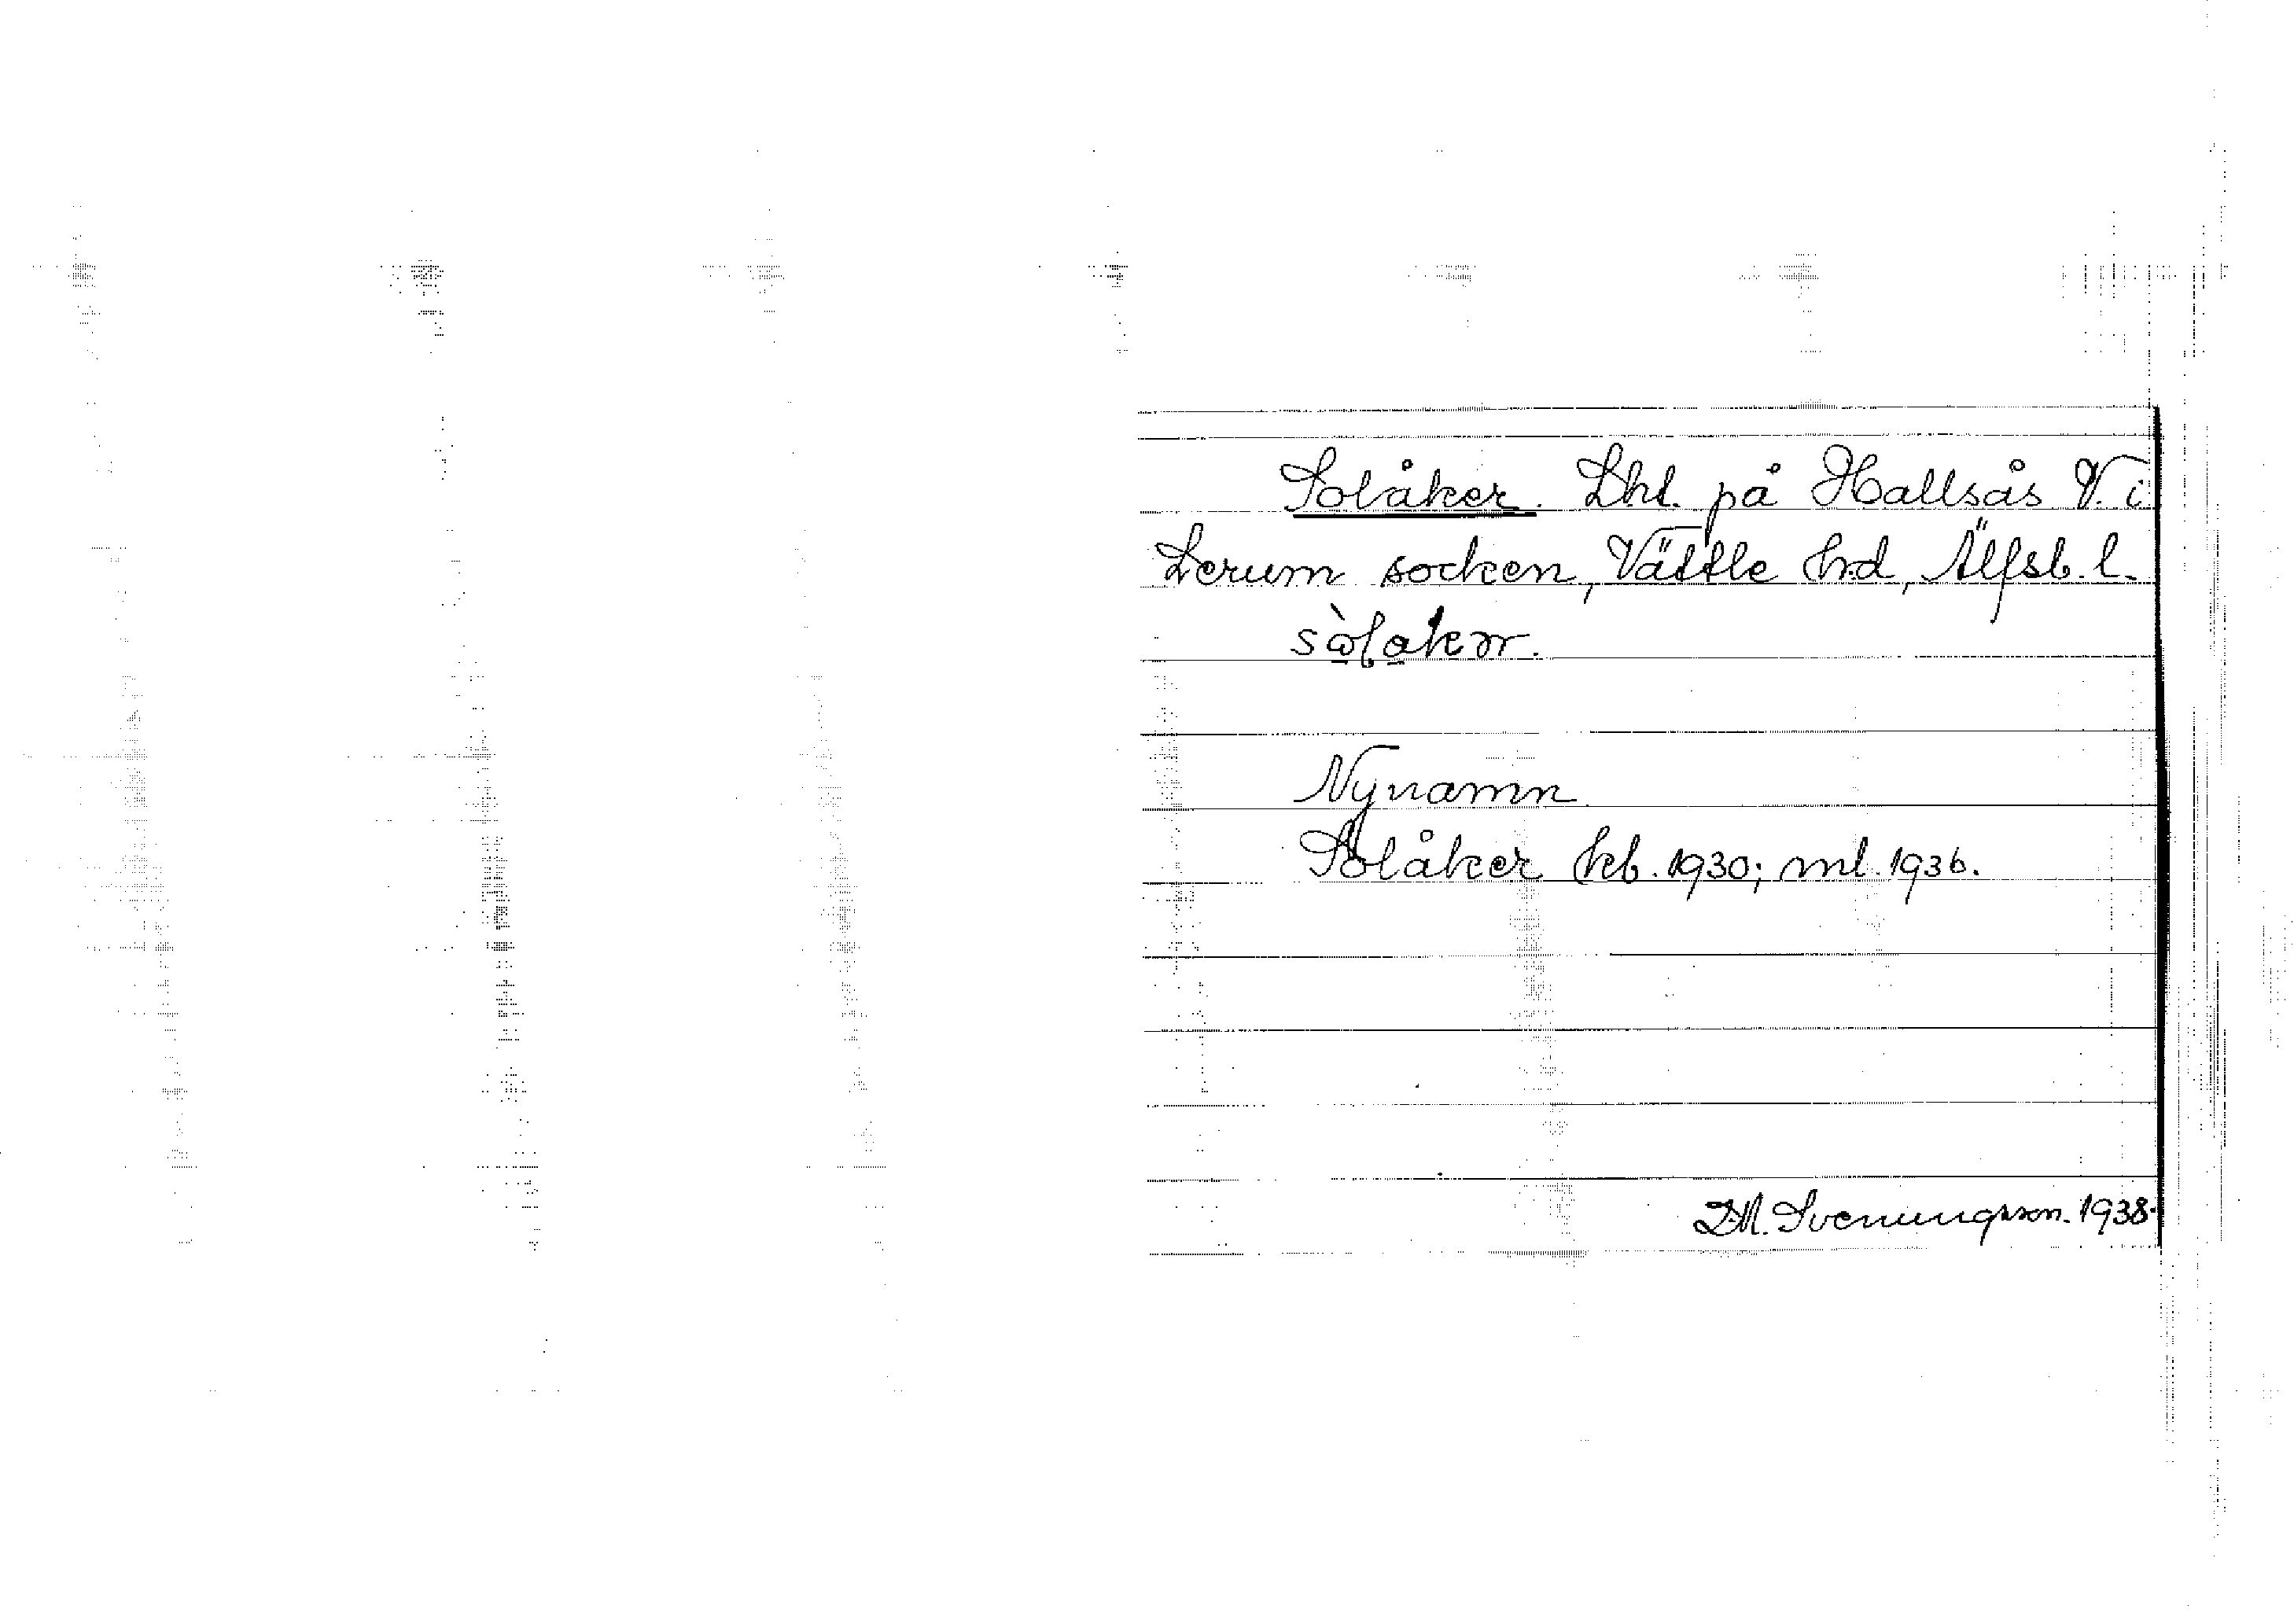 Solåker. Lht. på Hallsås V. i
Lerum socken, Vättle hrd, Älfsb. l.
Nynamn
Solåker kb. 1930; ml. 1936.
D.M. Svenungsson. 1938.